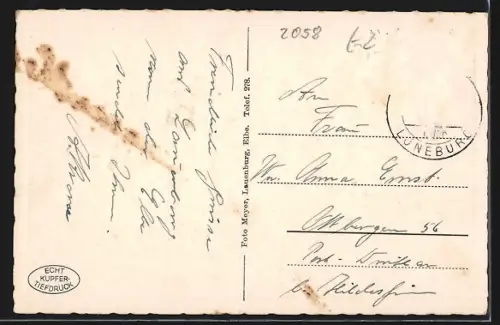 2058
An
Frau
Ww. Anna Ernst
Ottbergen 56
Post-
bei Hildesheim
LÜNEBURG
Foto Meyer, Lauenburg, Elbe. Telef. 278.
Freundliche Grüsse
aus Lauenburg
an der Elbe
sendet Ihnen
ECHT
KUPFER-
TIEFDRUCK